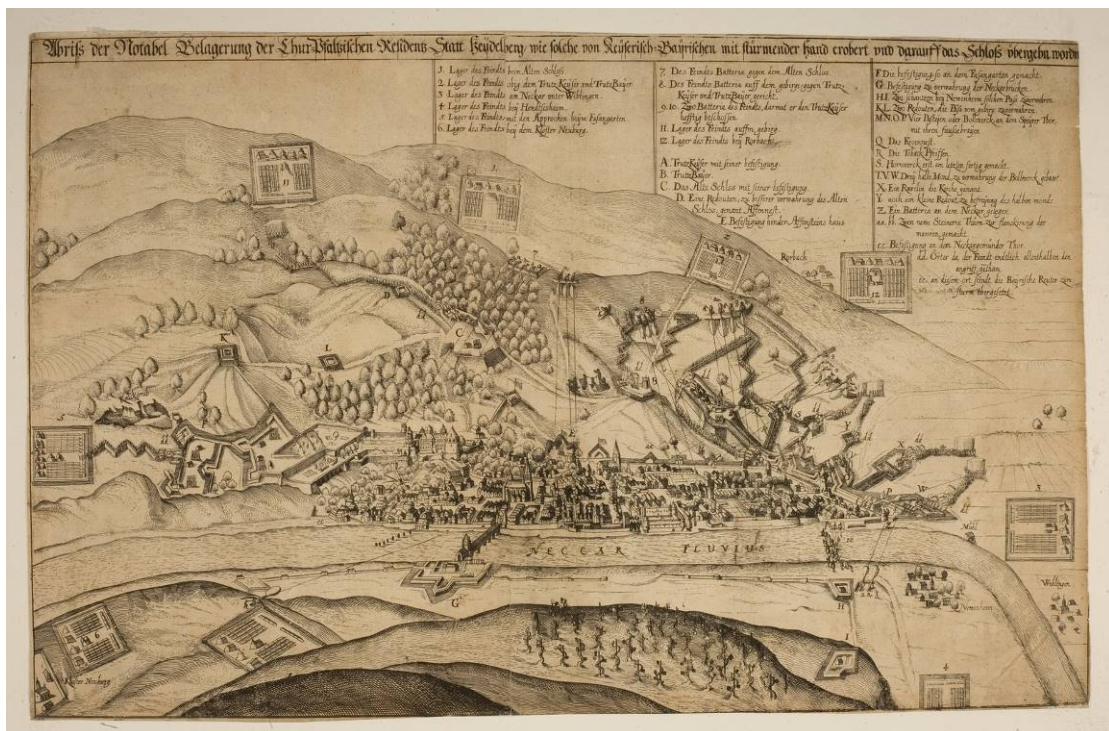 Abriß der Notabel Belagerung der Chur Pfältzischen Residents Statt Heydelberg, wie solche von Keyserisch-Bayrischen mit stürmender hand erobert und darauff das Schloß übergebn wordn
1. Lager des Feindts beim Alten Schloß
2. Lager des Feindts obig dem Trutz Keyser und Trutz Bayer
3. Lager des Feindts am Neckar unter Wiblingen
4. Lager des Feindts bey Hendeßheim
5. Lager des Feindts mit den Approchen beym Fasangarten
6. Lager des Feindts bej dem Kloster Neuburg
7. Des Feindts Batteria gegen dem Alten Schlos
8. Des Feindts Batteria auff dem gebirg gegen Trutz
Keyser und Trutz Bayer gericht.
9. 10. Zwo Batterie des Feindts, darmit er den Trutz Keyser
hefftig beschossen
11. Lager des Feindts auffm gebirg.
12. Lager des Feindts beij Rorbach
A. Trutz Keyser mit seiner befestigung.
B. Trutz Bayer.
C. Das Alte Schlos mit seiner befestigung.
D. Eine Redouten, zu besserer verwahrung des Alten
Schlos, genant Affennest.
E. Befestigung hinder Affensteins haus
F. Die befestigung so an dem Fasangarten gemacht.
G. Befestigung zu verwahrung der Neckarbrücken.
HI. Zwo schantzen bej Neweinheim solchen Paß zuverwahren.
KL. Zwo Redouten, die Päß vom gebirg zuverwahren
M.N.O.P. Vier Bastejen oder Bollwerck an dem Speyrer Thor,
mit ihren faussebrayen
Q. Das Krennest.
R. Die Toback Pfeiffen.
S. Hornwerck erst am letzten fertig gemacht.
T.V.W. Dreij halbe Mond, zu verwahrung der Bollwerck gebawt
X. Ein Ravelin die Kirche genant.
Y. noch ein kleine Redout zu befreyung des halben monds
Z. Ein Batteria an dem Neckar gelegen.
aa. bb. Zween runde Steinerne Thürm zur flanckirung der
mauren gemacht
cc. Befestigung an dem Neckargemünder Thor.
dd. Örter da der Feindt endtlich allenthalben den
angriff gethan.
ee. an disem ort seindt die Bayrische Reuter zum
sturm übergesetzt.
11
1.
2
Rorbach
12
D
C
K
L
N
B
S
Y
X
5
3
P
W
NECCAR FLUVIUS
Mühl
Wiblingen
Neweinheim
G
H
I
6
4
Kloster Neuburg